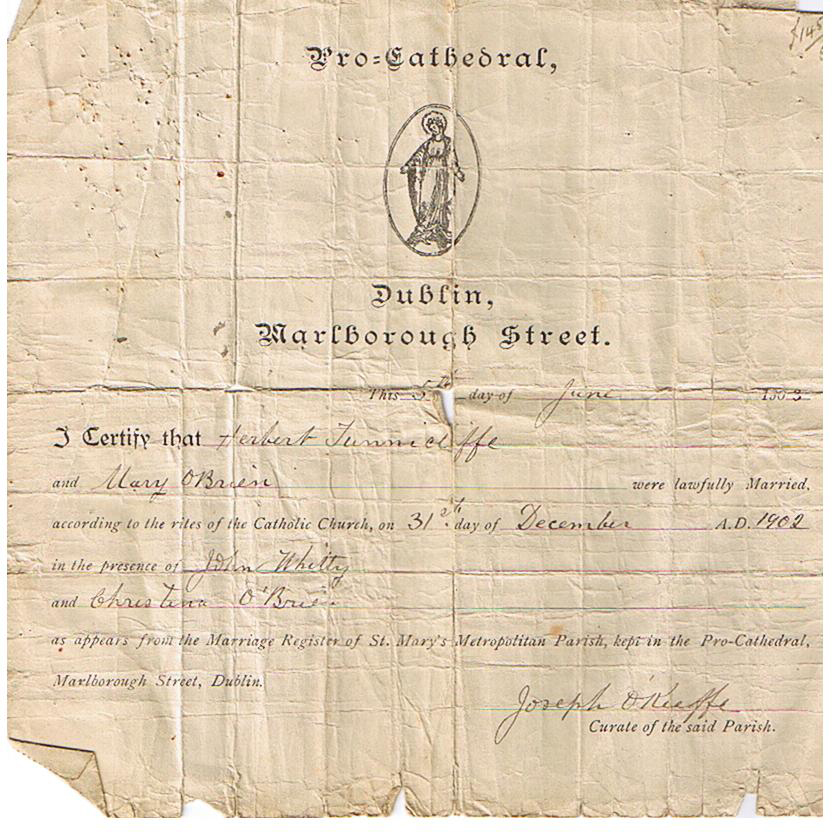 Pro=Cathedral,
Dublin,
Marlborough Street.
This 5th day of June 1903
I Certify that Herbert Tunnicliffe
and Mary O'Brien were lawfully Married,
according to the rites of the Catholic Church, on 31st day of December A.D. 1902
in the presence of John Whitty
and Christina O'Brien
as appears from the Marriage Register of St. Mary's Metropolitan Parish, kept in the Pro-Cathedral,
Marlborough Street, Dublin.
Joseph O'Keeffe
Curate of the said Parish.